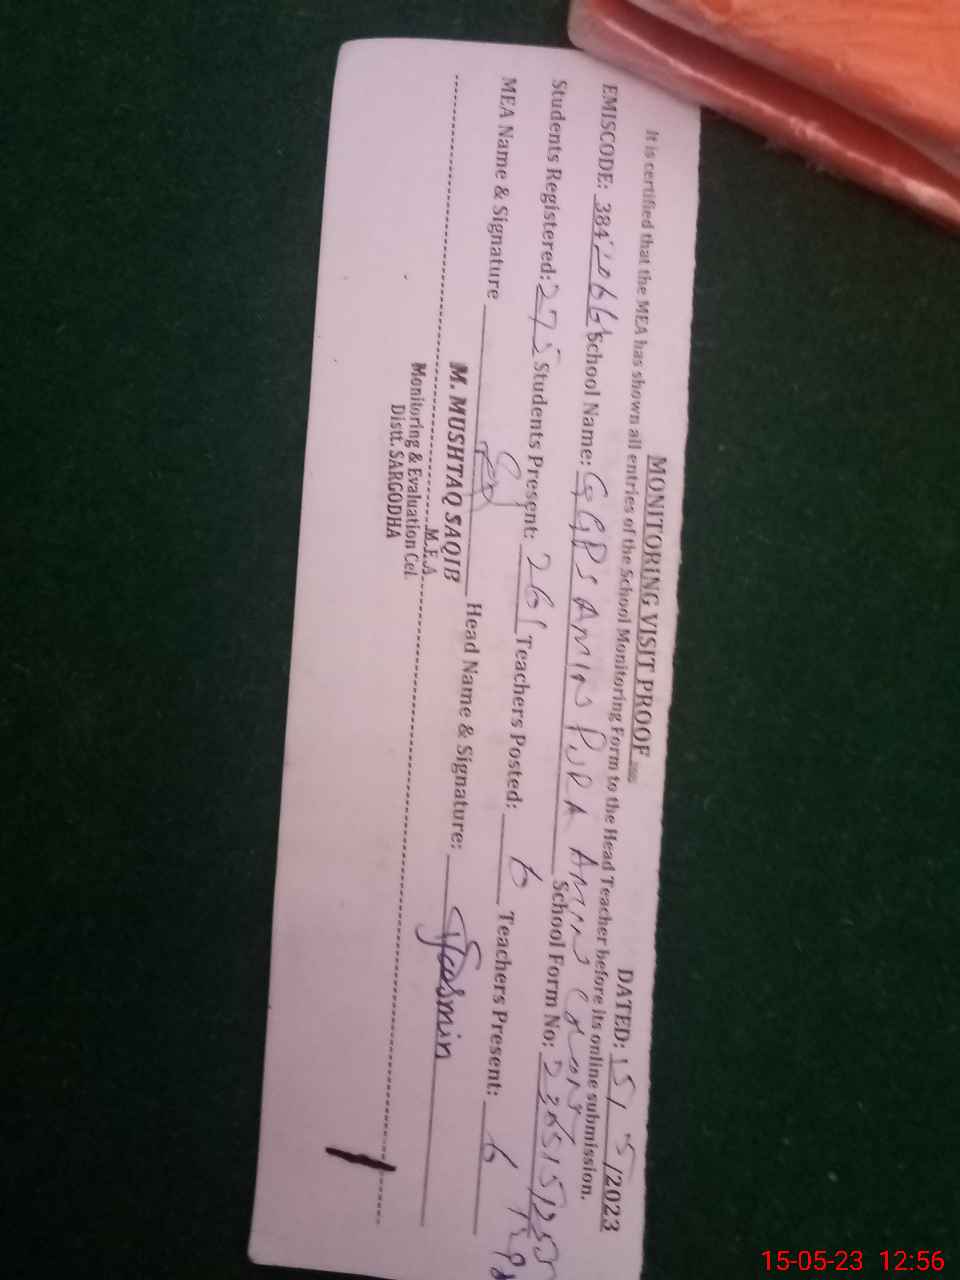 MONITORING VISIT PROOF
DATED: 15/5/2023
It is certified that the MEA has shown all entries of the School Monitoring Form to the Head Teacher before its online submission.
EMISCODE: School Name: GGPS AMIN PURA AMIN School Form No:
Students Registered: 275 Students Present: 261 Teachers Posted: 6 Teachers Present: 6
MEA Name & Signature Head Name & Signature: Yasmin
M. MUSHTAQ SAQIB
M.E.A
Monitoring & Evaluation Cel.
Distt. SARGODHA
15-05-23 12:56